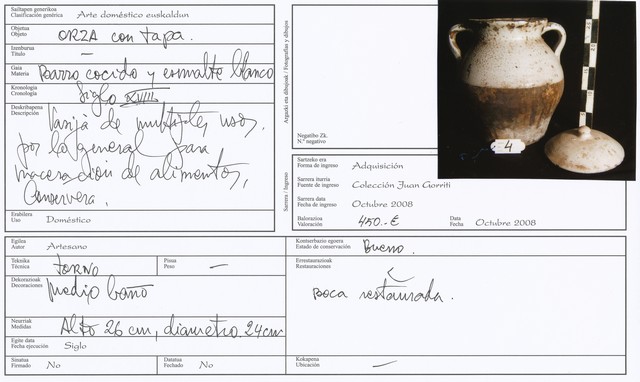 Sailtapen generikoa
Clasificación genérica Arte doméstico euskaldun
Objetua
Objeto ORZA con tapa.
Izenburua
Título —
Gaia
Materia Barro cocido y esmalte blanco
Kronologia
Cronología Siglo XVIII
Deskribapena
Descripción Vasija de multiples usos,
por lo general para
maceración de alimentos,
Conservera.
Erabilera
Uso Doméstico
Argazki eta dibujoak / Fotografías y dibujos
Negatibo Zk.
N.º negativo
4
Sarrera / Ingreso
Sartzeko era
Forma de ingreso Adquisición
Sarrera iturria
Fuente de ingreso Colección Juan Gorriti
Sarrera data
Fecha de ingreso Octubre 2008
Balorazioa
Valoración 450.-€
Data
Fecha Octubre 2008
Egilea
Autor Artesano
Teknika
Técnica TORNO
Pisua
Peso —
Dekorazioak
Decoraciones medio baño
Neurriak
Medidas Alto 26 cm, diametro 24cm
Egite data
Fecha ejecución Siglo
Sinatua
Firmado No
Datatua
Fechado No
Kontserbazio egoera
Estado de conservación Bueno.
Errestaurazioak
Restauraciones
Boca restaurada.
Kokapena
Ubicación —